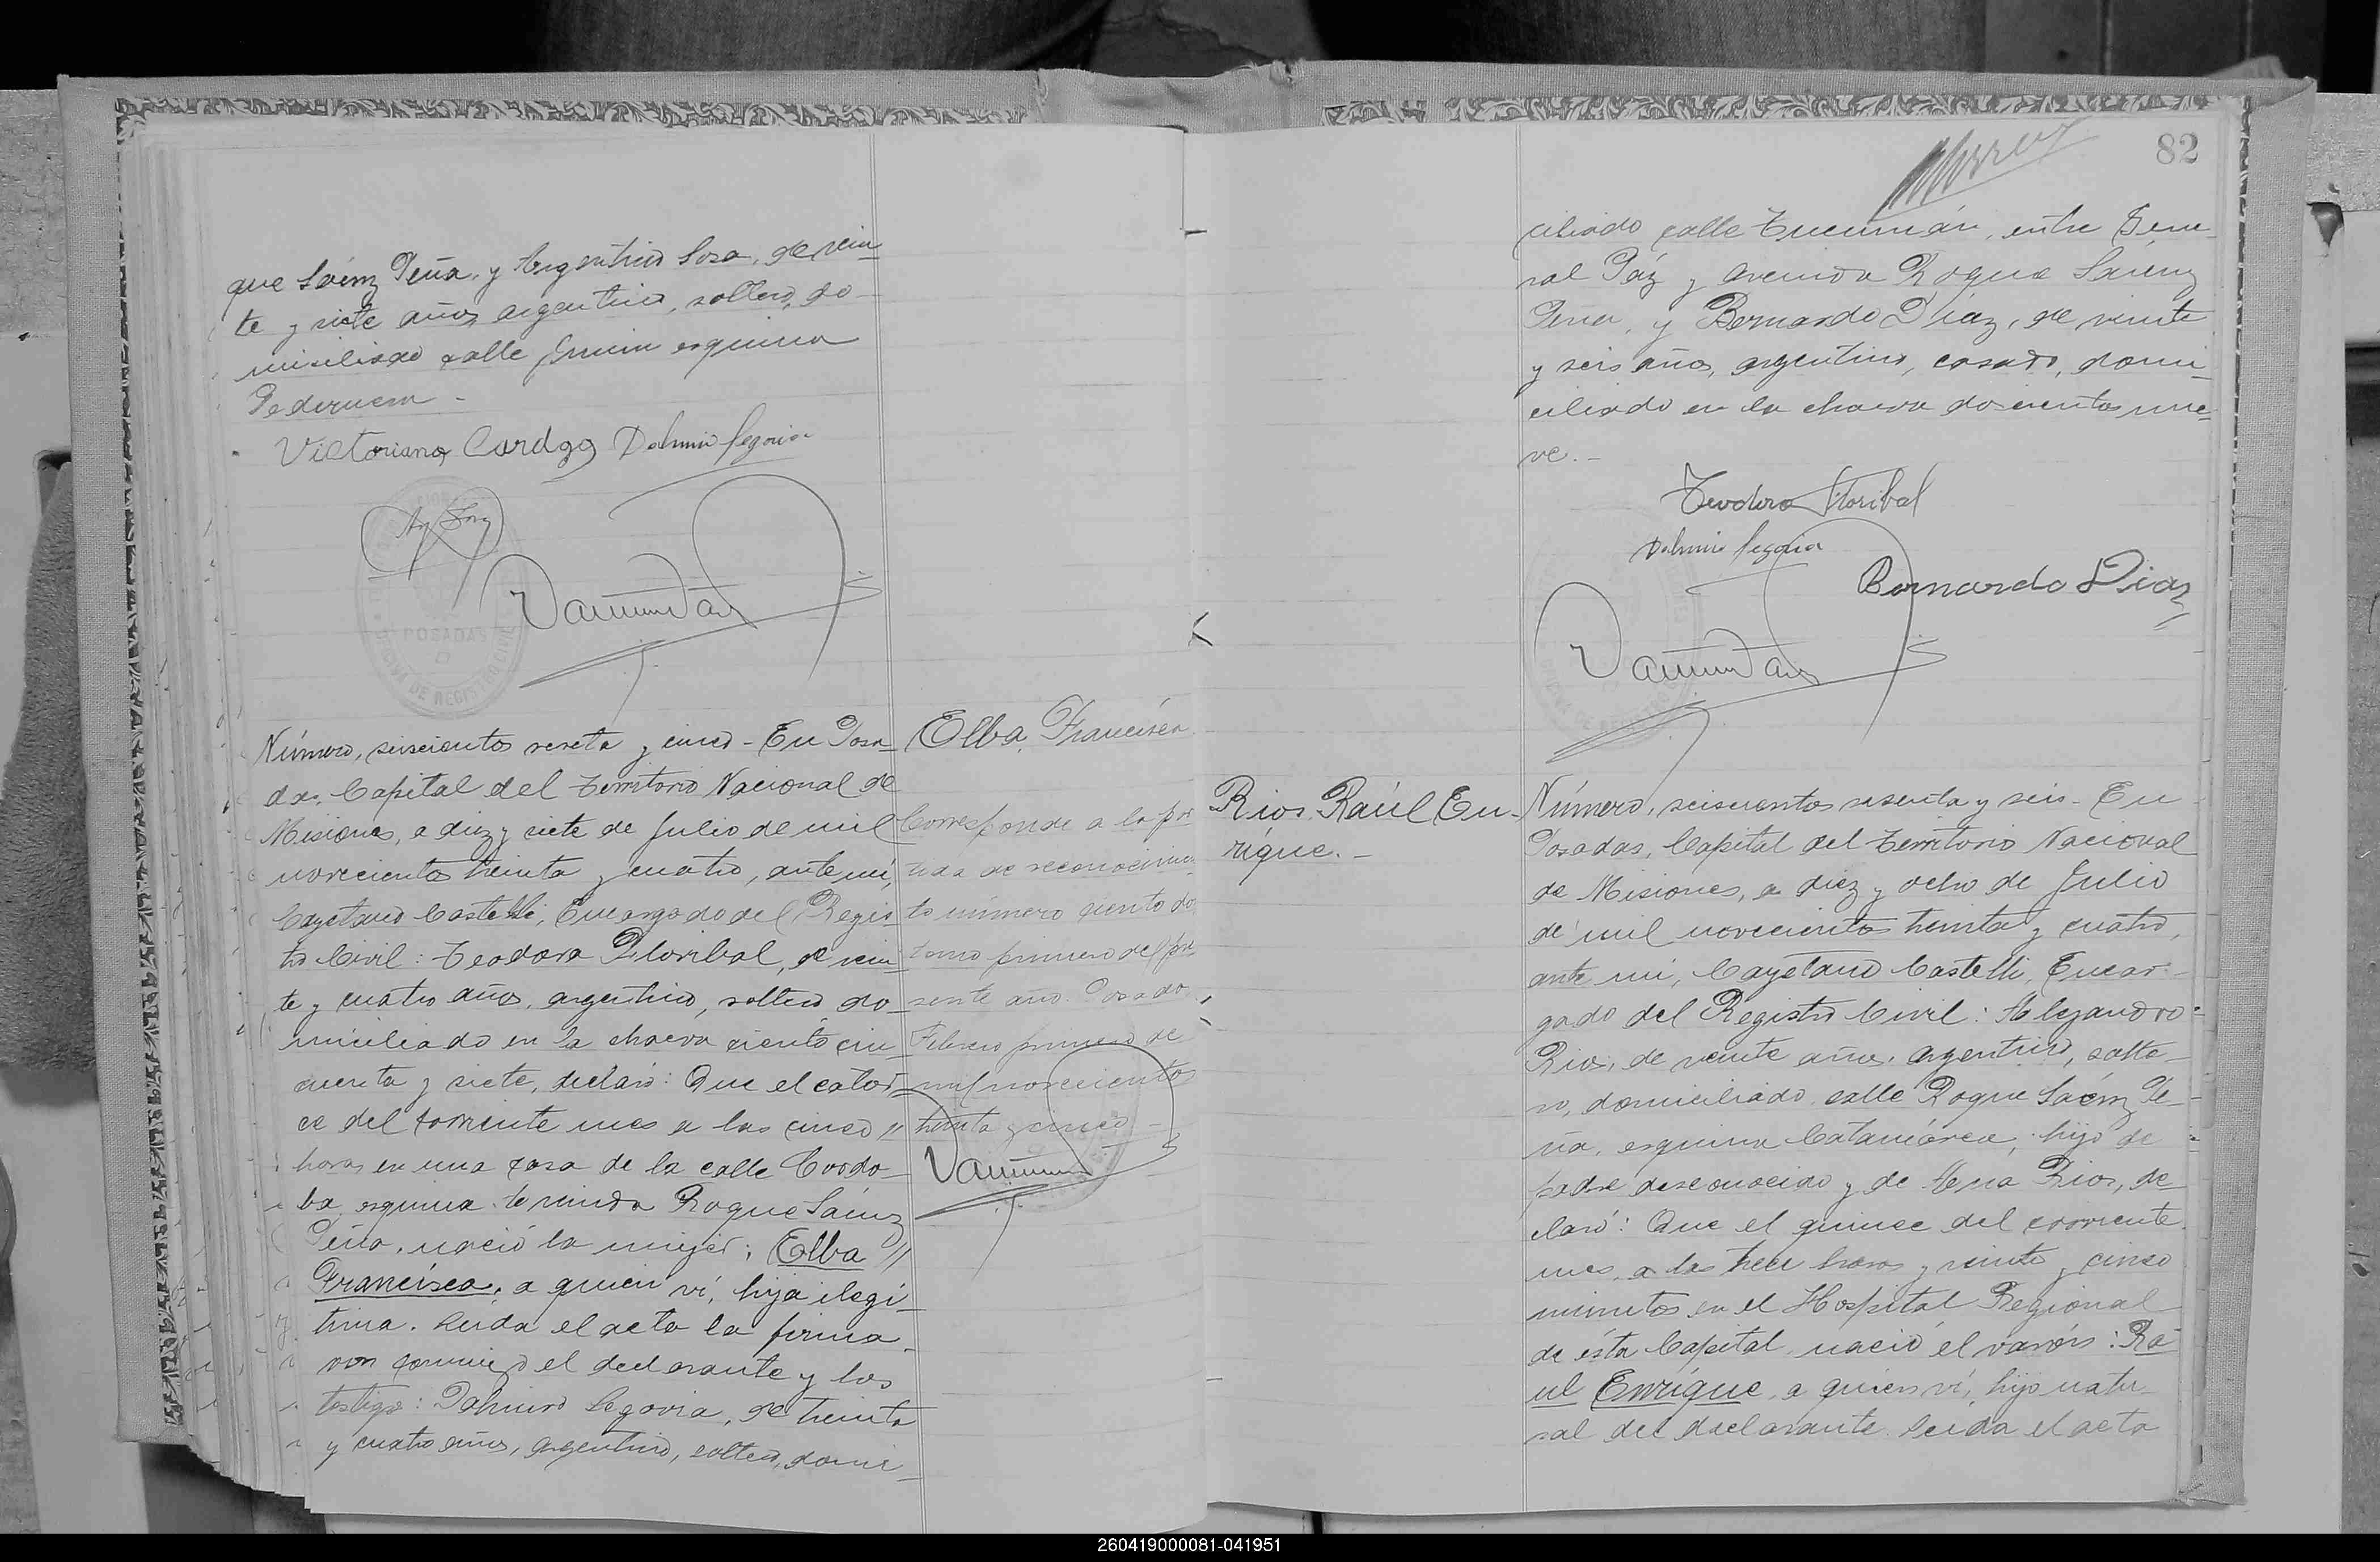 que Sáenz Peña, y Argentino Sosa, de vein
te y siete años, argentino, soltero, do-
misiliado calle Junin esquina
Pedernera -
Victoriano Cardozo Dalmiro Segovia
POSADAS
Número, seiscientos seseta y cinco - En Posa
das, Capital del Territorio Nacional de
Misiones, a diez y siete de Julio de mil
novecientos treinta y cuatro, ante mí,
Cayetano Castelli, Encargado del Regis-
tro Civil: Teodoro Floribal, de vein
te y cuatro años, argentino, soltero, do
miciliado en la chacra ciento cin-
cuenta y siete, declaró: Que el cator-
ce del corriente mes a las cinco "
horas en una casa de la calle Cordo-
ba, esquina Avenida Roque Sáenz
Peña, nació la mujer: Elba //
Francisca, a quien ví, hija ilegi-
tima. Leida el acta la firma-
ron conmigo el declarante y los
testigos: Dalmiro Segovia, de treinta
y cuatro años, argentino, soltero, domi-
Elba, Francisca
Corresponde a la par
tida de reconocimien
to número ciento dos
tomo primero del pre
sente año. Posadas,
Febrero primero de
mil novecientos
treinta y cinco -
82
ciliado calle Tucumán, entre Gene-
ral Páz y avenida Roque Sáenz
Peña, y Bernardo Díaz, de veinte
y seis años, argentino, casado, domi-
ciliado en la chacra doscientos nue-
ve. -
Teodoro Floribal
Dalmiro Segovia
Bernardo Diaz
Rios, Raúl En-
rique. -
Número, seiscientos sesenta y seis - En
Posadas, Capital del Territorio Nacional
de Misiones, a diez y ocho de Julio
de mil novecientos treinta y cuatro,
ante mí, Cayetano Castelli, Encar-
gado del Registro Civil: Alejandro
Rios, de veinte años, argentino, solte-
ro, domiciliado calle Roque Sáenz Pe-
ña, esquina Catamarca, hijo de
padre desconocido y de Ana Rios, de
claró: Que el quince del corriente
mes, a las trece horas y veinte y cinco
minutos en el Hospital Regional
de ésta Capital, nació el varón: Ra
úl Enrique, a quien ví, hijo natu-
ral del declarante. Leida el acta
260419000081-041951